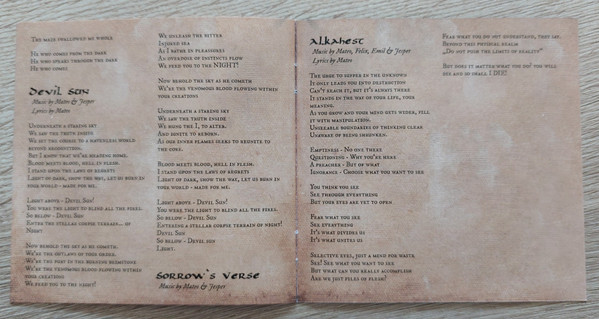 The maze swallowed me whole
He who comes from the dark
He who speaks through the dark
He who comes
Devil Sun
Music by Mateo & Jesper
Lyrics by Mateo
Underneath a staring sky
We saw the truth inside
We set the course to a nameless world
beyond recognition.
But I know that we're heading home.
Blood meets blood, hell in flesh.
I stand upon the laws of regrets
Light of dark, show the way, let us burn in
your world - made for me.
Light above - Devil Sun!
You were the light to blind all the fires.
So below - Devil Sun
Enter the stellar corpse terrain... of
Night
Now behold the sky as he cometh.
We're the outlaws of your order.
We're the
We're the venomous blood flowing within
your creations
We feed you to the night!
We unleash the bitter
Injured sea
As I bathe in pleasures
An overdose of instincts flow
We feed you to the NIGHT!
Now behold the sky as he cometh
We're the venomous blood flowing within
your creations
Underneath a staring sky
We saw the truth inside
We bring the I, to alter.
And ignite to reborn.
As our inner flames seeks to reunite to
the core.
Blood meets blood, hell in flesh.
I stand upon the laws of regrets
Light of dark, show the way, let us burn in
your world - made for me.
Light above - Devil Sun!
You were the light to blind all the fires.
So below - Devil Sun
Entering the stellar corpse terrain of Night!
Devil Sun
So below - Devil Sun
Light.
Sorrow's Verse
Music by Mateo & Jesper
Alkahest
Music by Mateo, Felix, Emil & Jesper
Lyrics by Mateo
The urge to suffer in the unknown
It only leads you into destruction
Can't reach it, but it's always there
It stands in the way of your life, your
meaning.
As you grow and your mind gets wider, fill
it with manipulation.
Unreliable boundaries of thinking clear
Unaware of being unbroken.
Emptiness - No one there
Questioning - Why you're here
A preacher - But of what
Ignorance - Choose what you want to see
You think you see
See through everything
But your eyes are yet to open
Fear what you see
See everything
It's what divides us
It's what unites us
Selective eyes, just a mind for waste
See! See what you want to see
But what can you really accomplish
Are we just piles of flesh?
Fear what you do not understand, they say.
Beyond this physical realm
„Do not push the limits of reality"
But does it matter what you do? You will
die and in small I DIE!